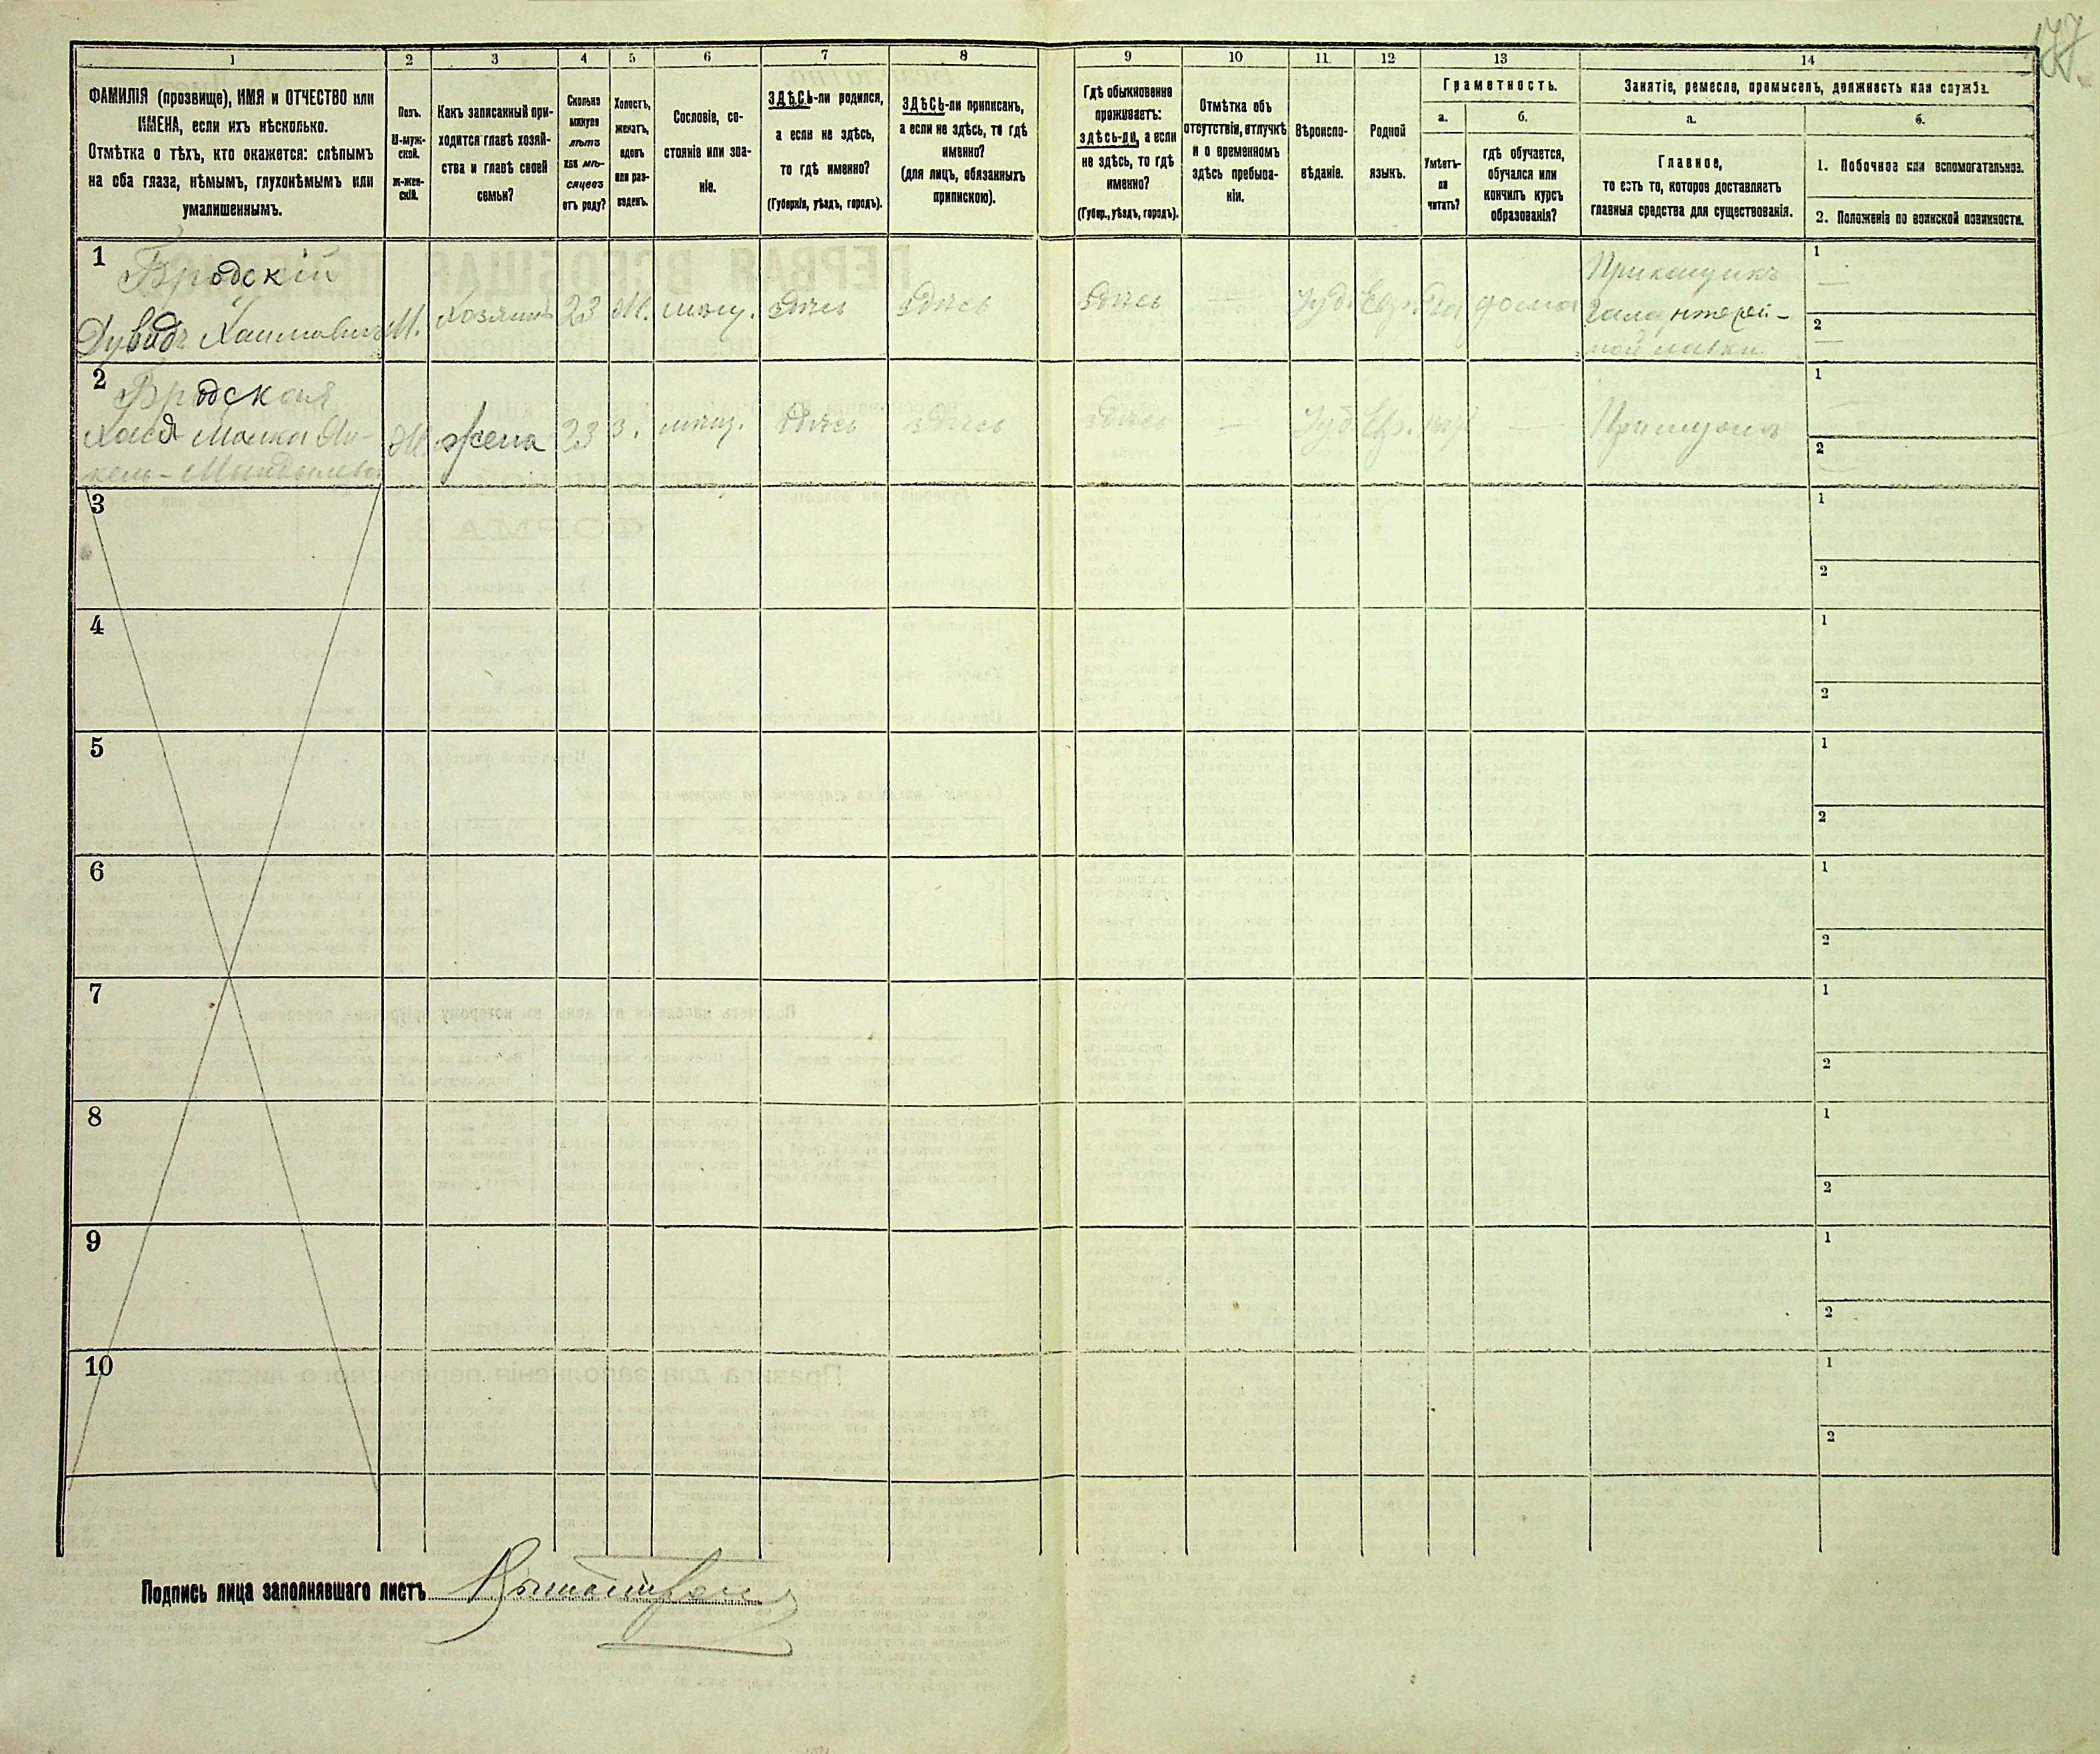 177
1
2
3
4
5
6
7
8
9
10
11
12
13
14
ФАМИЛІЯ (прозвище), ИМЯ и ОТЧЕСТВО или
ИМЕНА, если ихъ нѣсколько.
Отмѣтка о тѣхъ, кто окажется: слѣпымъ
на оба глаза, нѣмымъ, глухонѣмымъ или
умалишеннымъ.
Полъ.
М-муж-
ской.
ж-жен-
скій.
Какъ записанный при-
ходится главѣ хозяй-
ства и главѣ своей
семьи?
Сколько
минуло
лѣтъ
или мѣ-
сяцевъ
отъ роду?
Холостъ,
женатъ,
вдовъ
или раз-
веденъ.
Сословіе, со-
стояніе или зва-
ніе.
ЗДѢСЬ-ли родился,
а если не здѣсь,
то гдѣ именно?
(Губернія, уѣздъ, городъ).
ЗДѢСЬ-ли приписанъ,
а если не здѣсь, то гдѣ
именно?
(для лицъ, обязанныхъ
припискою).
Гдѣ обыкновенно
проживаетъ:
здѣсь-ли, а если
не здѣсь, то гдѣ
именно?
(Губер., уѣздъ, городъ).
Отмѣтка объ
отсутствіи, отлучкѣ
и о временномъ
здѣсь пребыва-
ніи.
Вѣроиспо-
вѣданіе.
Родной
языкъ.
Грамотность.
а.
б.
Умѣетъ-
ли
читать?
гдѣ обучается,
обучался или
кончилъ курсъ
образованія?
Занятіе, ремесло, промыселъ, должность или служба.
а.
б.
Главное,
то есть то, которое доставляетъ
главныя средства для существованія.
1. Побочное или вспомогательное.
2. Положеніе по воинской повинности.
1
Бродскій
Дувидъ Хаимовичъ
М.
Хозяинъ
23
Ж.
мѣщ.
Здѣсь
Здѣсь
Здѣсь
—
Іуд.
Евр.
Да
дома
Прикащикъ
галантерей-
ной лавки
1
—
2
—
2
Бродская
Хася Малка Ян-
кель-Мендылева
Ж.
жена
23
З.
мѣщ.
Здѣсь
Здѣсь
Здѣсь
—
Іуд.
Евр.
нѣт
—
При мужѣ
1
—
2
—
3
1
2
4
1
2
5
1
2
6
1
2
7
1
2
8
1
2
9
1
2
10
1
2
Подпись лица заполнявшаго листъ